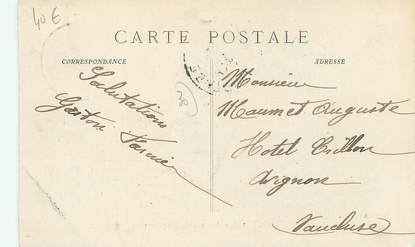 40€
CARTE POSTALE
CORRESPONDANCE
ADRESSE
30
Salutations
Gaston
Monsieur
Maumet Auguste
Hotel Crillon
Avignon
Vaucluse